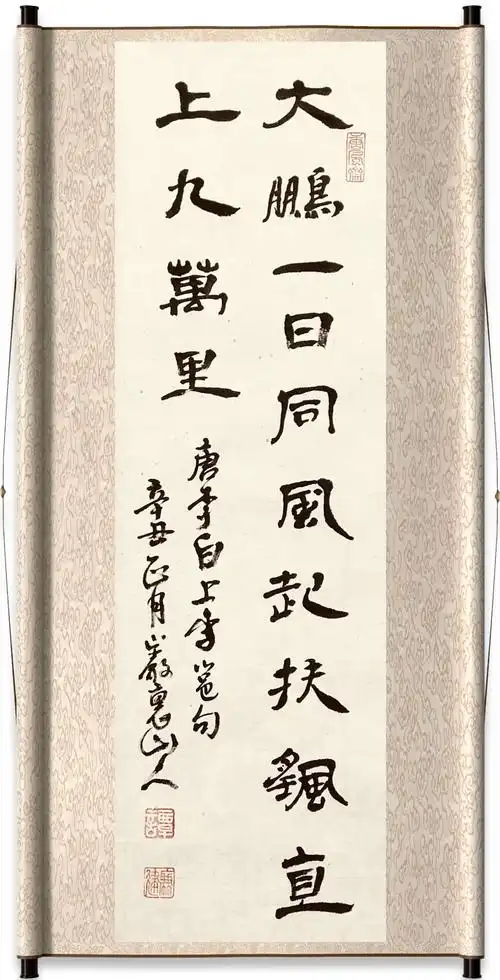 大鵬一日同風起扶颻直
上九萬里
唐李白上李邕句
辛丑正月巖裏山人